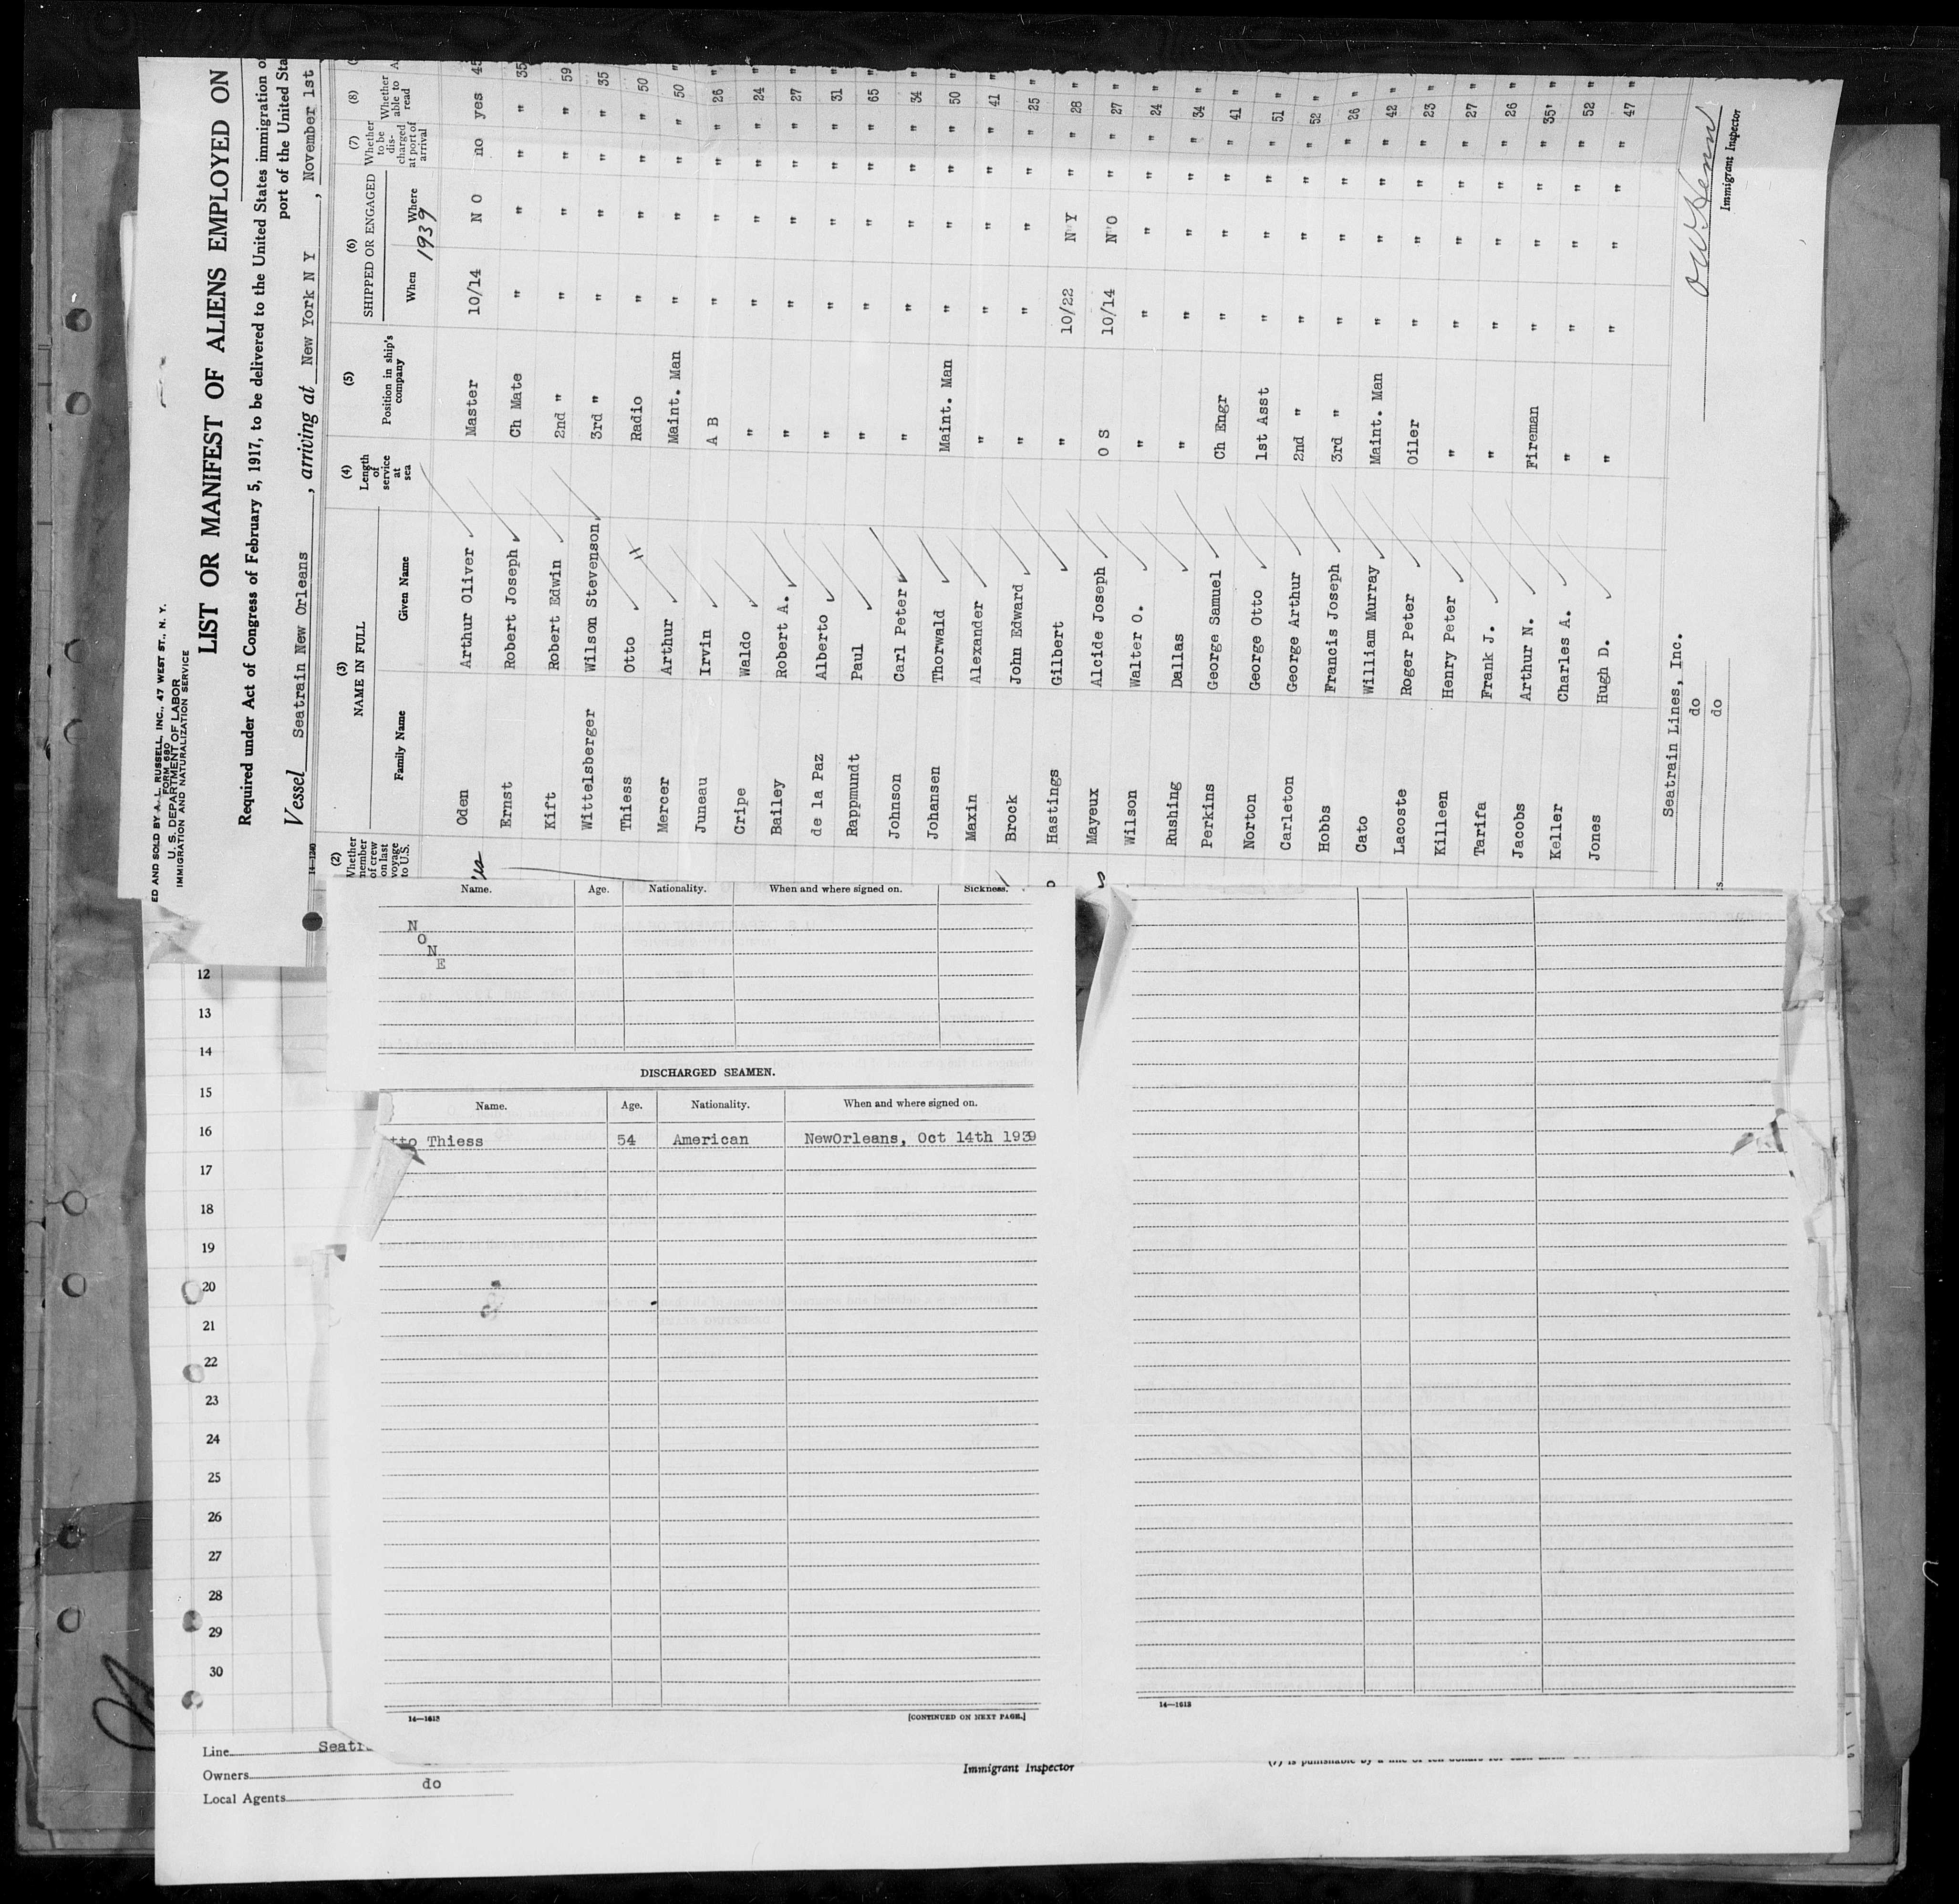 ED AND SOLD BY A. L. RUSSELL, INC., 47 WEST ST., N. Y.
FORM 680
U. S. DEPARTMENT OF LABOR
IMMIGRATION AND NATURALIZATION SERVICE
LIST OR MANIFEST OF ALIENS EMPLOYED ON
Required under Act of Congress of February 5, 1917, to be delivered to the United States immigration o
port of the United Sta
Vessel Seatrain New Orleans, arriving at New York N Y, November 1st
14-1240
(2) Whether member of crew on last voyage to U.S.
(3) NAME IN FULL
Family Name Given Name
(4) Length of service at sea
(5) Position in ship's company
(6) SHIPPED OR ENGAGED
When Where
1939
(7) Whether to be discharged at port of arrival
(8) Whether able to read
Oden Arthur Oliver Master 10/14 N O no yes 45
Ernst Robert Joseph Ch Mate " " " " 35
Kift Robert Edwin 2nd " " " " " 59
Wittelsberger Wilson Stevenson 3rd " " " " " 35
Thiess Otto Radio " " " " 50
Mercer Arthur Maint. Man " " " " 50 "
Juneau Irvin A B " " " " 26 "
Cripe Waldo " " " " " 24 "
Bailey Robert A. " " " " " 27 "
de la Paz Alberto " " " " " 31 "
Rappmundt Paul " " " " " 65 "
Johnson Carl Peter " " " " " 34 "
Johansen Thorwald Maint. Man " " " " 50 "
Maxin Alexander " " " " " 41 "
Brock John Edward " " " " " 25 "
Hastings Gilbert " 10/22 N Y " " 28 "
Mayeux Alcide Joseph O S 10/14 N O " " 27 "
Wilson Walter O. " " " " " 24 "
Rushing Dallas " " " " " 34 "
Perkins George Samuel Ch Engr " " " " 41 "
Norton George Otto 1st Asst " " " " 51 "
Carleton George Arthur 2nd " " " " " 52 "
Hobbs Francis Joseph 3rd " " " " " 26 "
Cato William Murray Maint. Man " " " " 42 "
Lacoste Roger Peter Oiler " " " " 23 "
Killeen Henry Peter " " " " " 27 "
Tarifa Frank J. " " " " " 26 "
Jacobs Arthur N. Fireman " " " " 35 "
Keller Charles A. " " " " " 52 "
Jones Hugh D. " " " " " 47 "
Seatrain Lines, Inc.
do
do
Immigrant Inspector
Name. Age. Nationality. When and where signed on. Sickness.
N
O
N
E
DISCHARGED SEAMEN.
Name. Age. Nationality. When and where signed on.
tto Thiess 54 American NewOrleans, Oct 14th 1939
14—1613
[CONTINUED ON NEXT PAGE.]
14—1613
12
13
14
15
16
17
18
19
20
21
22
23
24
25
26
27
28
29
30
Line Seatr
Owners
do
Local Agents
Immigrant Inspector